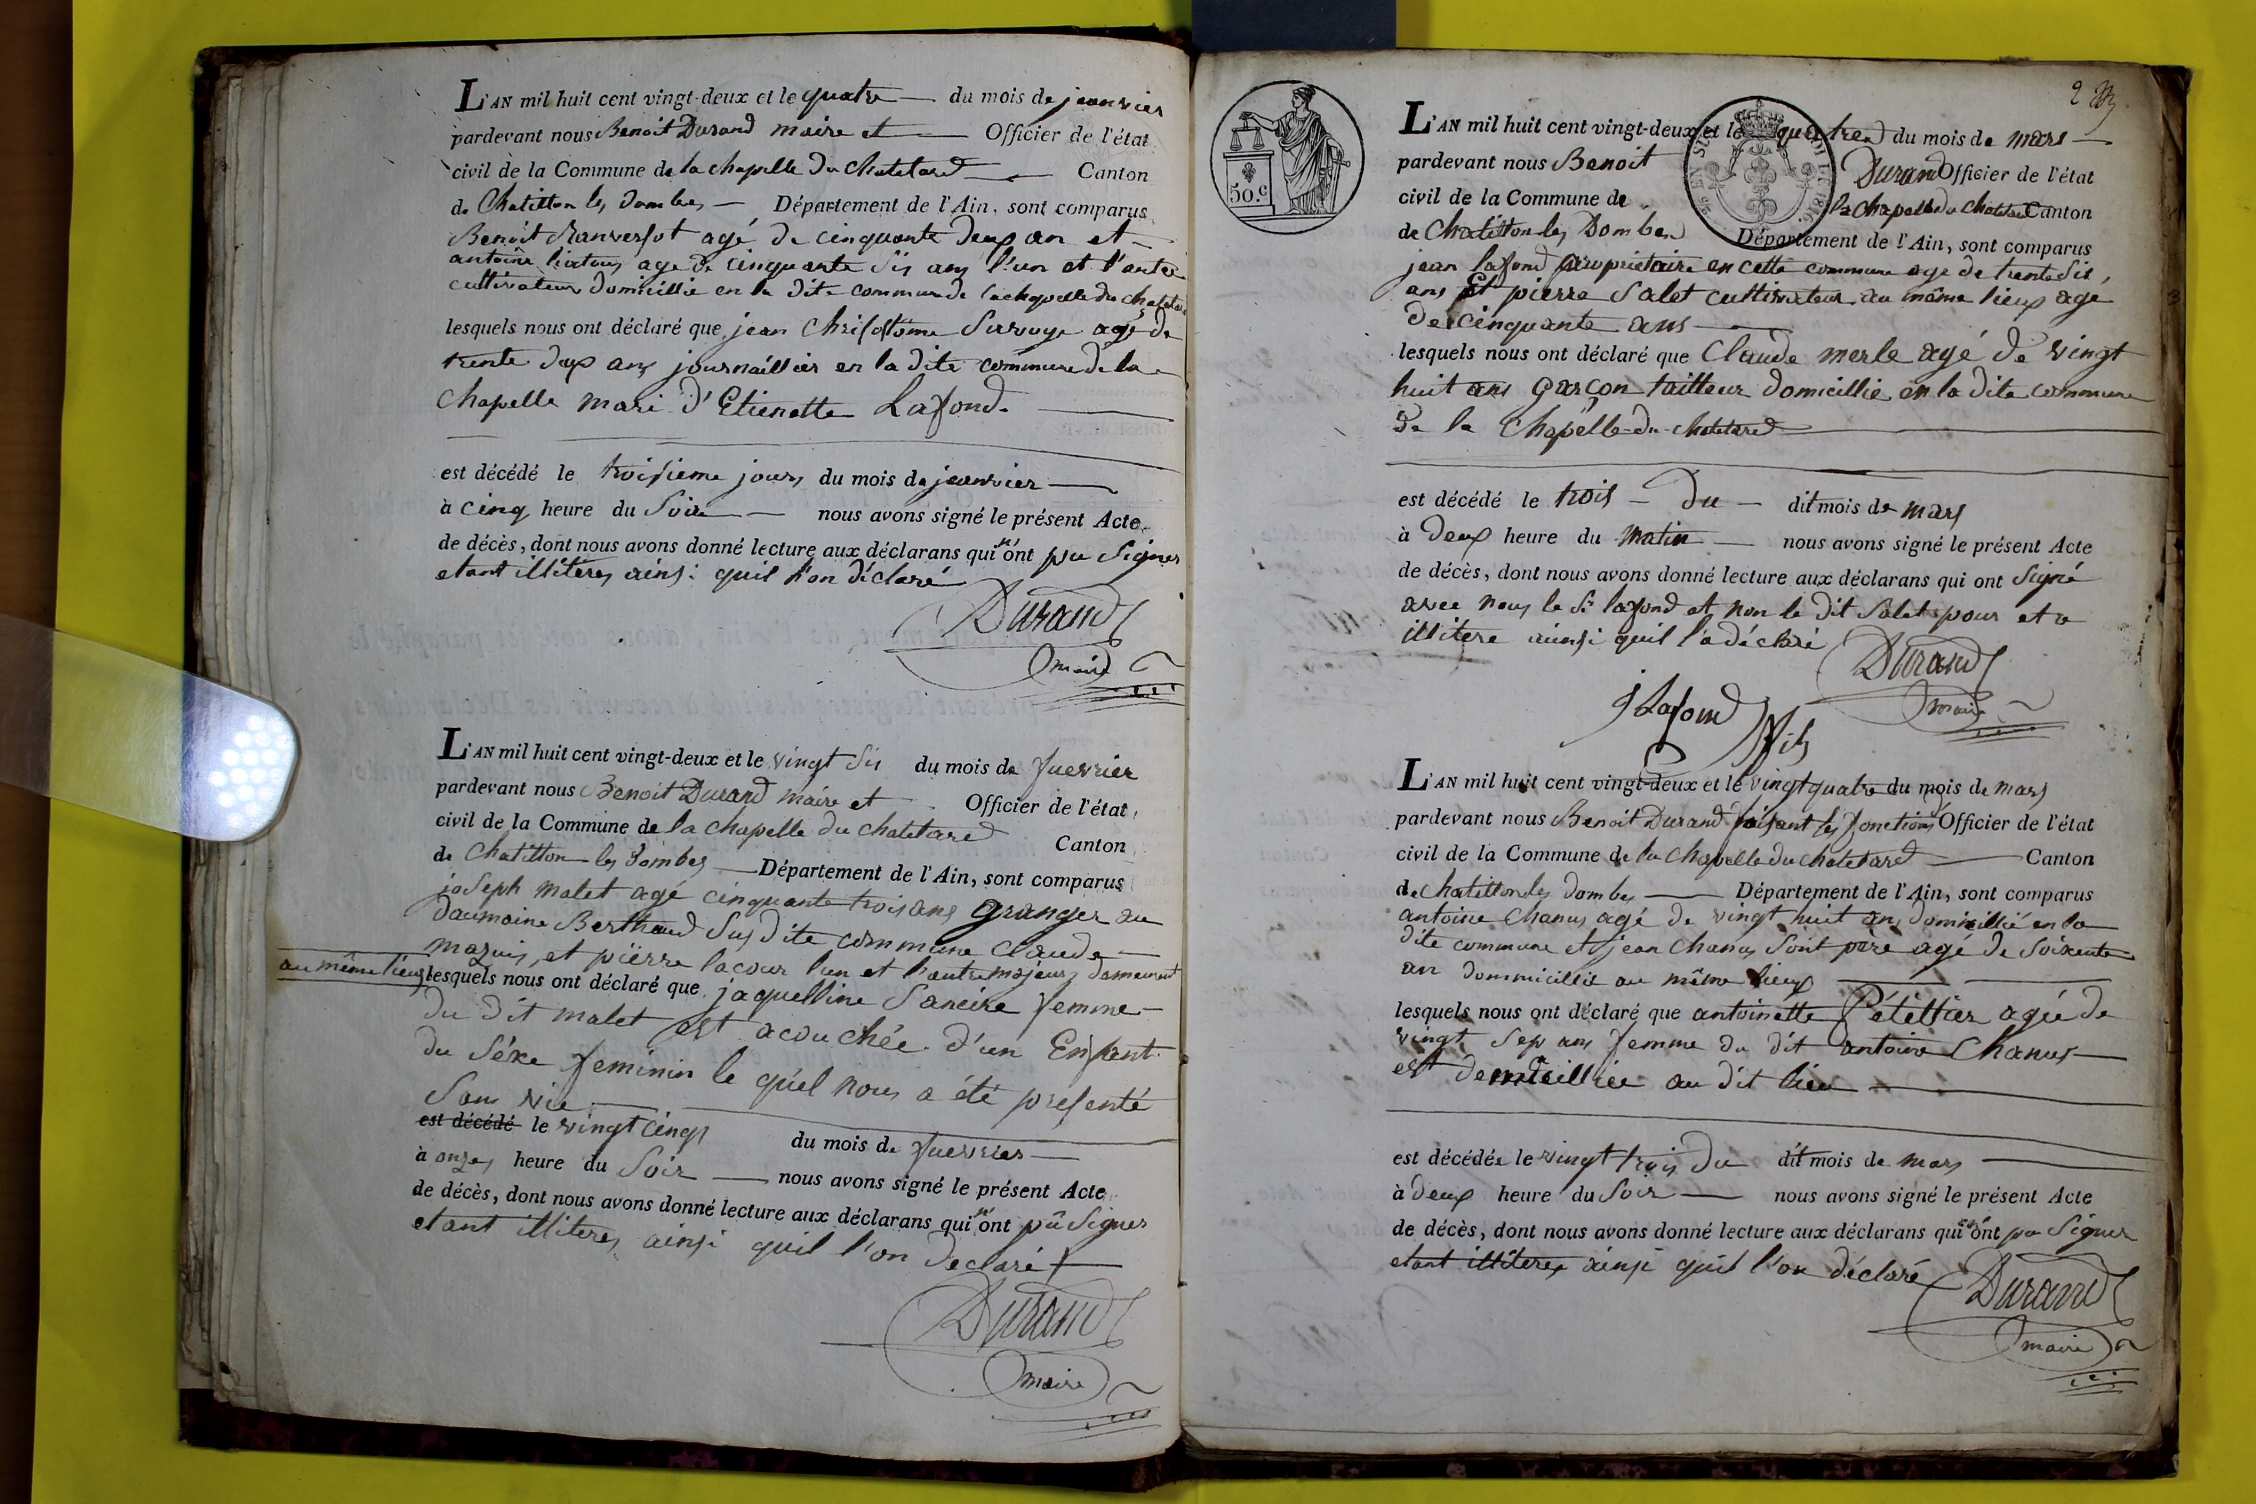 L'AN mil huit cent vingt-deux et le quatre du mois de jeanvier
pardevant nous Benoit Durand maire et Officier de l'état
civil de la Commune de la chapelle du Chatelard Canton
de Chatillon les Dombes Département de l'Ain, sont comparus
Benoit Ranversot agé de cinquante deux an et
antoine agé de cinquante sis ans l'un et l'autre
cultivateur domicillié en la dite commune de lachapelle du chatelard
lesquels nous ont déclaré que jean Chrisostome Servoye agé de
trente deux ans journaillier en la dite commune de la
Chapelle mari d'Etienette Lafond.
est décédé le troisieme jours du mois de jeanvier
à cinq heure du Soir nous avons signé le présent Acte
de décès, dont nous avons donné lecture aux déclarans qui n'ont pu Signer
etant illiteres ainsi quil l'on déclaré
Durand
maire
L'AN mil huit cent vingt-deux et le vingt sis du mois de fuevrier
pardevant nous Benoit Durand maire et Officier de l'état
civil de la Commune de la chapelle du chatelard Canton
de Chatillon les Dombes Département de l'Ain, sont comparus
joseph malet agé cinquante trois ans granger au
daumaine Berthaud Sus dite commune Claude
et pierre lacour l'un et l'autre majeurs demeurent
au même lieux lesquels nous ont déclaré que jaquelline Sancire femme
du dit malet est acouchée d'un Enfant
du séxe feminin le quel nous a été presenté
Sans vie
est décédé le vingt cinq du mois de fuevrier
à onzes heure du Soir nous avons signé le présent Acte
de décès, dont nous avons donné lecture aux déclarans qui n'ont pû Signer
etant illiteres ainsi quil l'on declaré
Durand
maire
2
50.C
L'AN mil huit cent vingt-deux et le quatre du mois de mars
pardevant nous Benoit Durand Officier de l'état
civil de la Commune de la Chapelle du Chatelard Canton
de Chatillon les Dombes Département de l'Ain, sont comparus
jean lafond propriétaire en cette commune agé de trente sis
ans Et pierre Salet cultivateur au même lieux agé
de cinquante ans
lesquels nous ont déclaré que Claude merle agé de vingt
huit ans garçon tailleur domicillié en la dite commune
de la Chapelle du chatelard
est décédé le trois du dit mois de mars
à deux heure du matin nous avons signé le présent Acte
de décès, dont nous avons donné lecture aux déclarans qui ont Signé
avec nous le Sr lafond et non le dit Salet pour etre
illitere ainsi quil l'a déclaré
Durand
maire
J Lafond fils
L'AN mil huit cent vingt-deux et le vingt quatre du mois de mars
pardevant nous Benoit Durand faisant les fonctions d'Officier de l'état
civil de la Commune de la Chapelle du chatelard Canton
de chatillon les dombes Département de l'Ain, sont comparus
antoine Chanus agé de vingt huit ans domicillié en la
dite commune et jean Chanus Sont pere agé de Soixente
an dommicillié au même lieux
lesquels nous ont déclaré que antoinette Pétellier agée de
vingt Sep ans femme du dit antoine Chanus
est demicilliée au dit lieu
est décédée le vingt trois du dit mois de mars
à deux heure du Soir nous avons signé le présent Acte
de décès, dont nous avons donné lecture aux déclarans qui n'ont pu Signer
etant illiteres ainsi quil l'on déclaré
Durand
maire